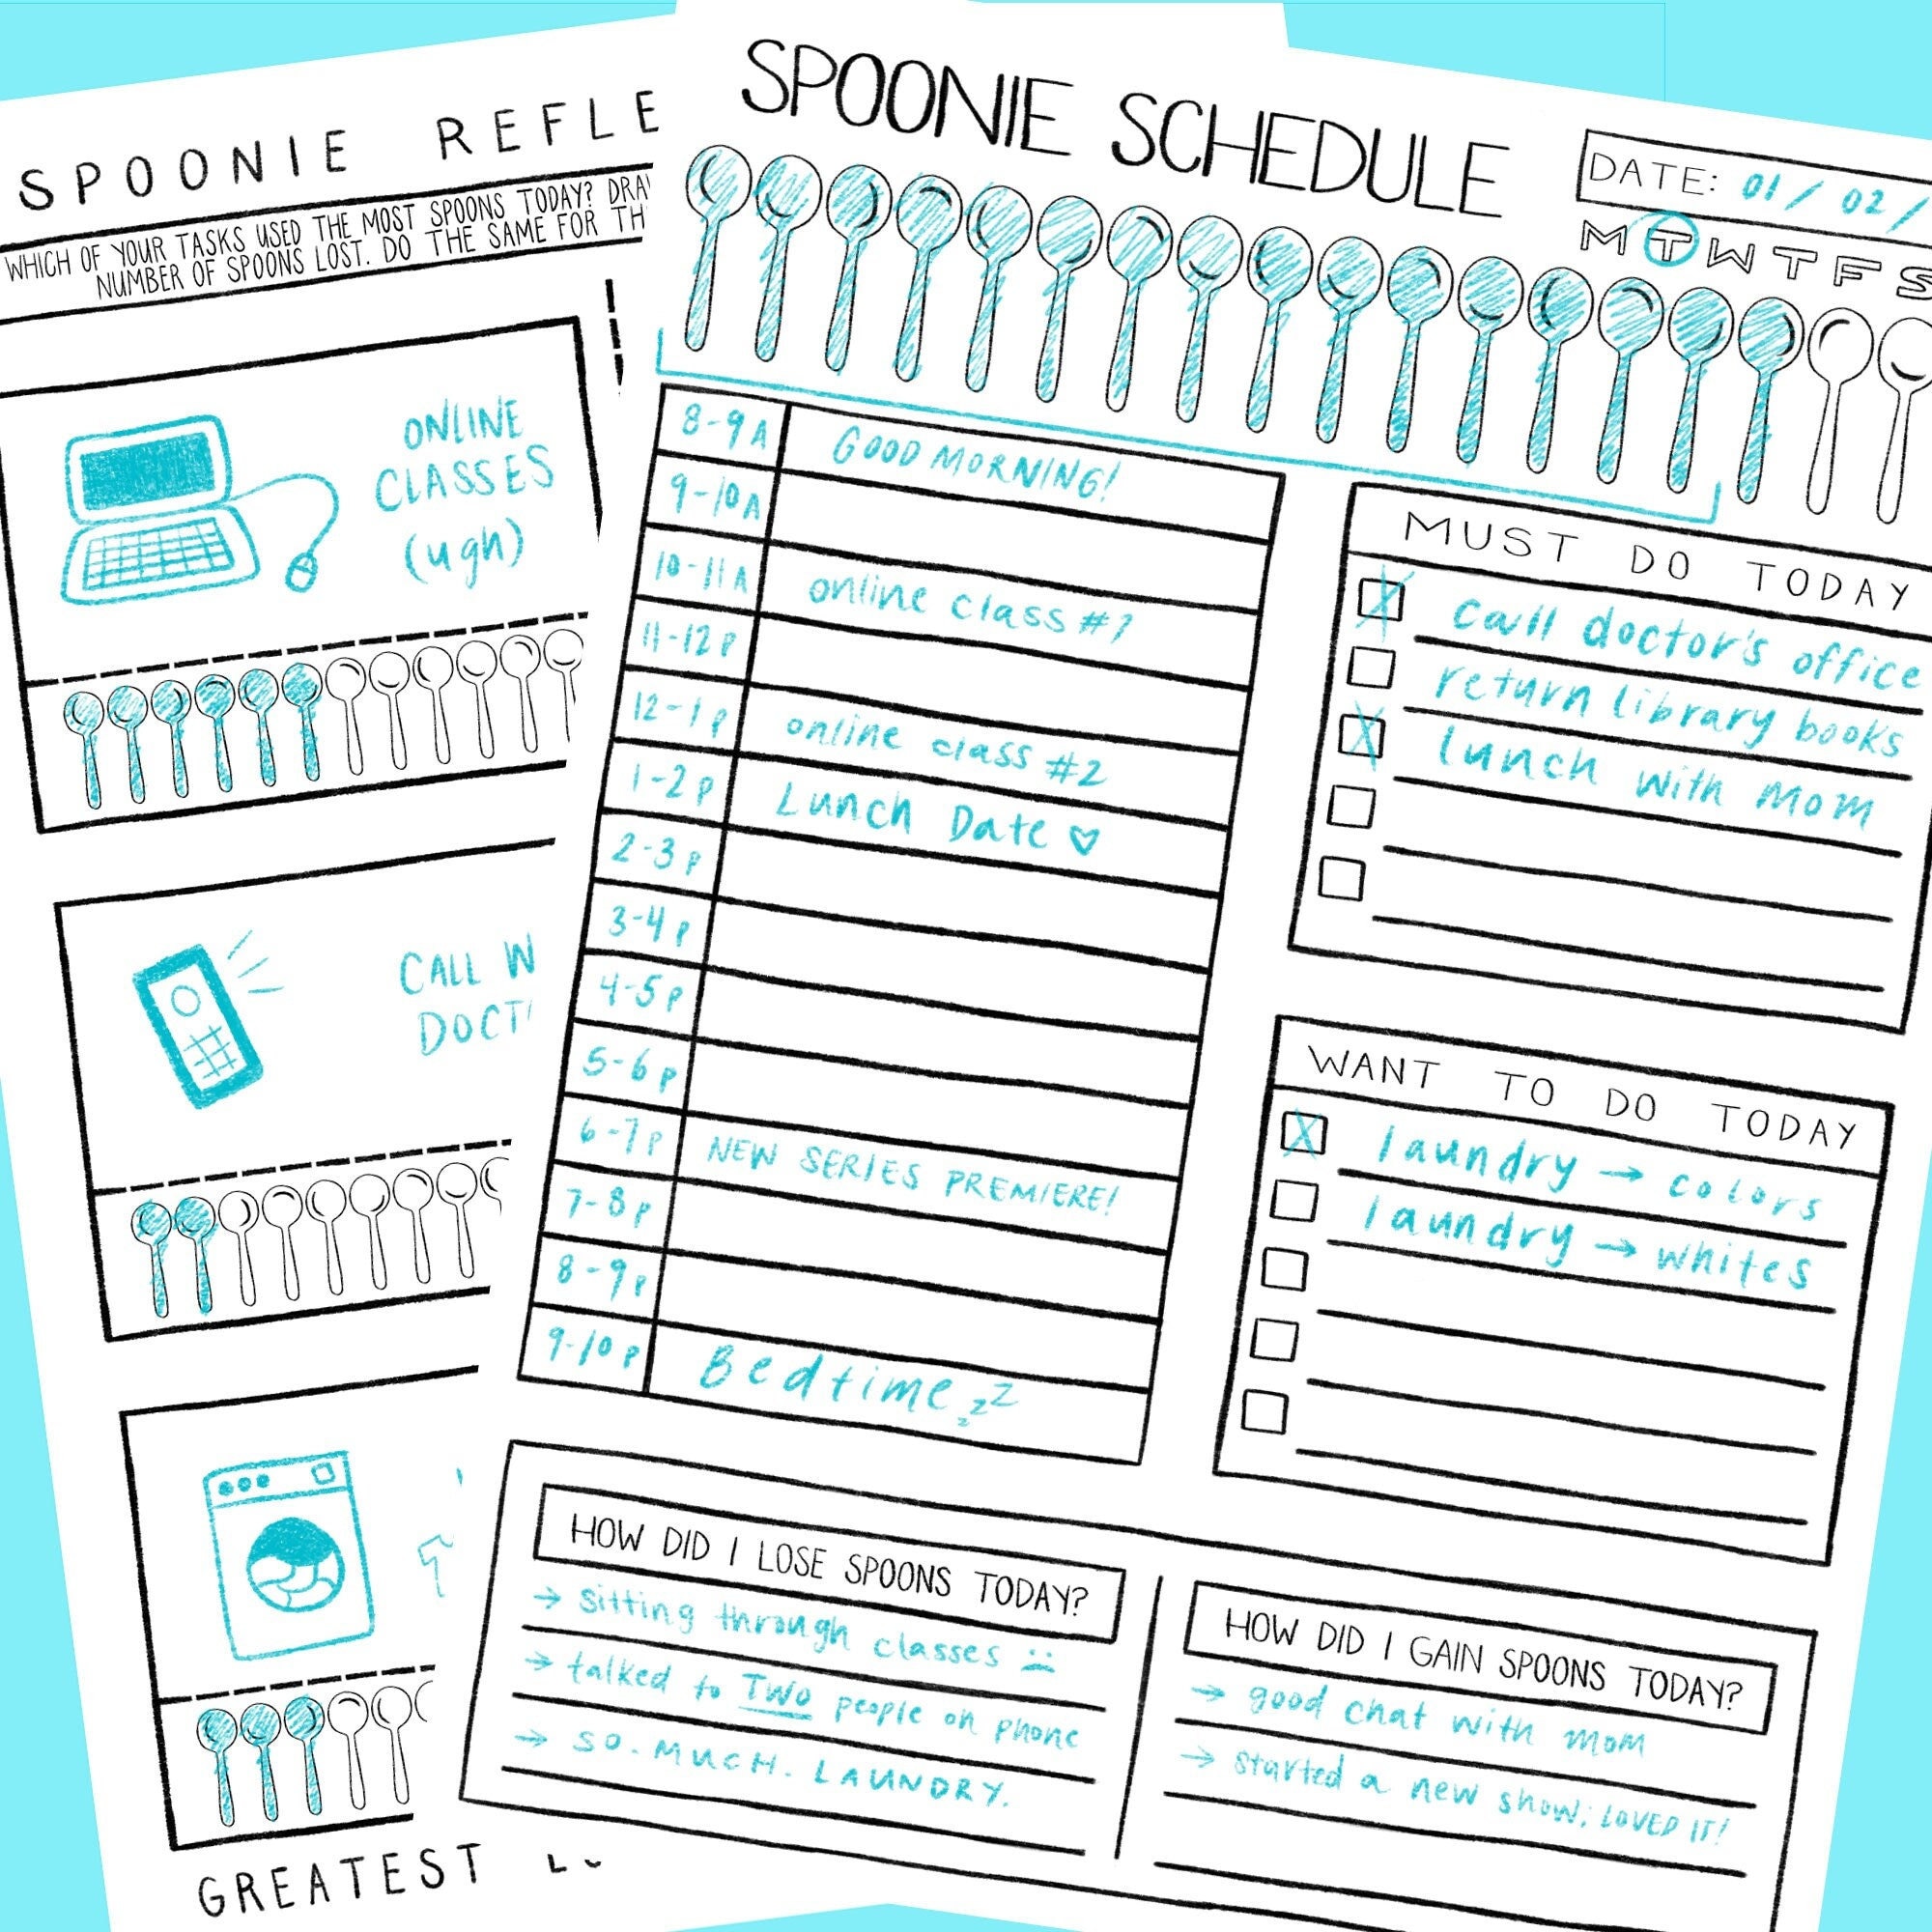 SPOONIE REFLE
WHICH OF YOUR TASKS USED THE MOST SPOONS TODAY? DRA
NUMBER OF SPOONS LOST. DO THE SAME FOR TH
ONLINE
CLASSES
(ugh)
CALL W
DOCT
GREATEST
SPOONIE SCHEDULE
DATE: 01 / 02 /
M T W T F S
8-9A GOOD MORNING!
9-10A
10-11A online class #1
11-12P
12-1P online class #2
1-2P Lunch Date ♡
2-3P
3-4P
4-5P
5-6P
6-7P NEW SERIES PREMIERE!
7-8P
8-9P
9-10P Bedtime zzz
MUST DO TODAY
call doctor's office
return library books
lunch with mom
WANT TO DO TODAY
laundry → colors
laundry → whites
HOW DID I LOSE SPOONS TODAY?
→ sitting through classes :(
→ talked to TWO people on phone
→ SO. MUCH. LAUNDRY.
HOW DID I GAIN SPOONS TODAY?
→ good chat with mom
→ started a new show; LOVED IT!